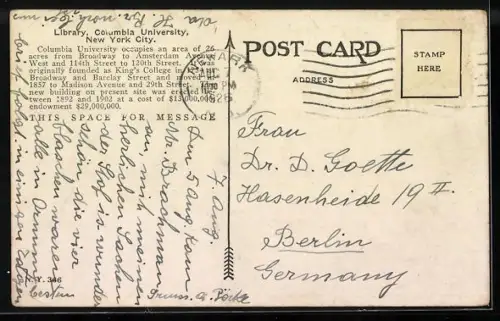 Library, Columbia University,
New York City.
Columbia University occupies an area of 26
acres from Broadway to Amsterdam Avenue
West and 114th Street to 120th Street. It was
originally founded as King's College in
Broadway and Barclay Street and moved in
1857 to Madison Avenue and 29th Street.
new building on present site was erected be-
tween 1892 and 1902 at a cost of $13,000,000
endowment $29,000,000.
THIS SPACE FOR MESSAGE
POST CARD
ADDRESS
STAMP
HERE
NEWARK
PM
1926
7. Aug.
Den 5 Aug. kam
Mr. Brachman
an, mit meinen
herrlichen Sachen
der Stof ist wunder
schön die vier
waren
alle in
in einigen Tagen
besten
Gruss
Frau
Dr. D. Goette
Hasenheide 19 II.
Berlin
Germany
N. Y. 346